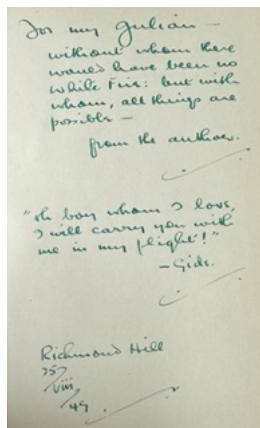 For my Julian —
without whom there
would have been no
White Fire: but with
whom, all things are
possible —
from the author.
"Oh boy whom I love,
I will carry you with
me in my flight!"
— Gide.
Richmond Hill
25/
viii/
49